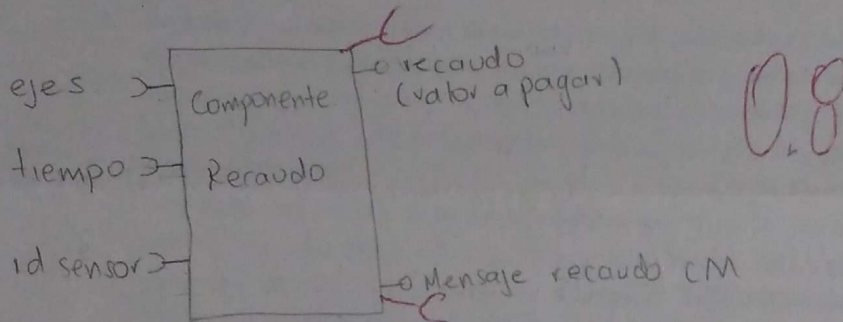 ejes
tiempo
id sensor
Componente
Recaudo
recaudo
(valor a pagar)
Mensaje recaudo CM
C
C
0.8